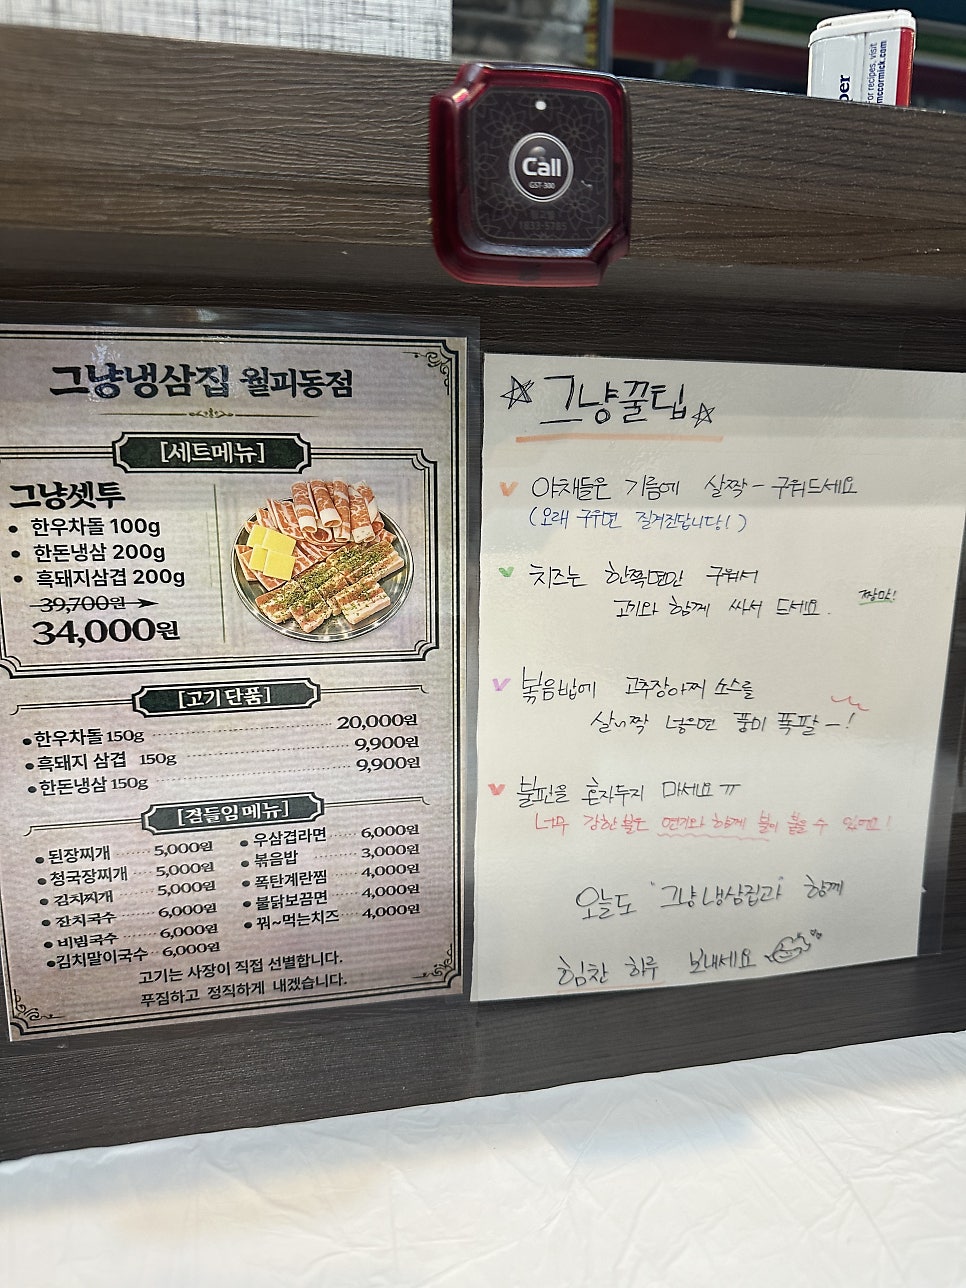 or recipes, visit
mccormick.com
per
Call
GST-300
1833-5785
그냥냉삼집 월피동점
[세트메뉴]
그냥셋투
• 한우차돌 100g
• 한돈냉삼 200g
• 흑돼지삼겹 200g
39,700원
34,000원
[고기 단품]
•한우차돌 150g 20,000원
•흑돼지 삼겹 150g 9,900원
•한돈냉삼 150g 9,900원
[곁들임 메뉴]
•된장찌개 5,000원
•청국장찌개 5,000원
•김치찌개 5,000원
•잔치국수 6,000원
•비빔국수 6,000원
•김치말이국수 6,000원
•우삼겹라면 6,000원
•볶음밥 3,000원
•폭탄계란찜 4,000원
•불닭보끔면 4,000원
•꿔~먹는치즈 4,000원
고기는 사장이 직접 선별합니다.
푸짐하고 정직하게 내겠습니다.
☆그냥꿀팁☆
야채들은 기름에 살짝- 구워드세요
(오래 구우면 질겨진답니다!)
치즈는 한쪽면만 구워서
고기와 함께 싸서 드세요. 짱맛!
볶음밥에 고추장아찌 소스를
살~짝 넣으면 풍미 폭팔-!
불판을 혼자두지 마세요ㅠ
너무 강한불은 연기와 함께 불이 붙을 수 있어요!
오늘도 "그냥냉삼집과" 함께
힘찬 하루 보내세요